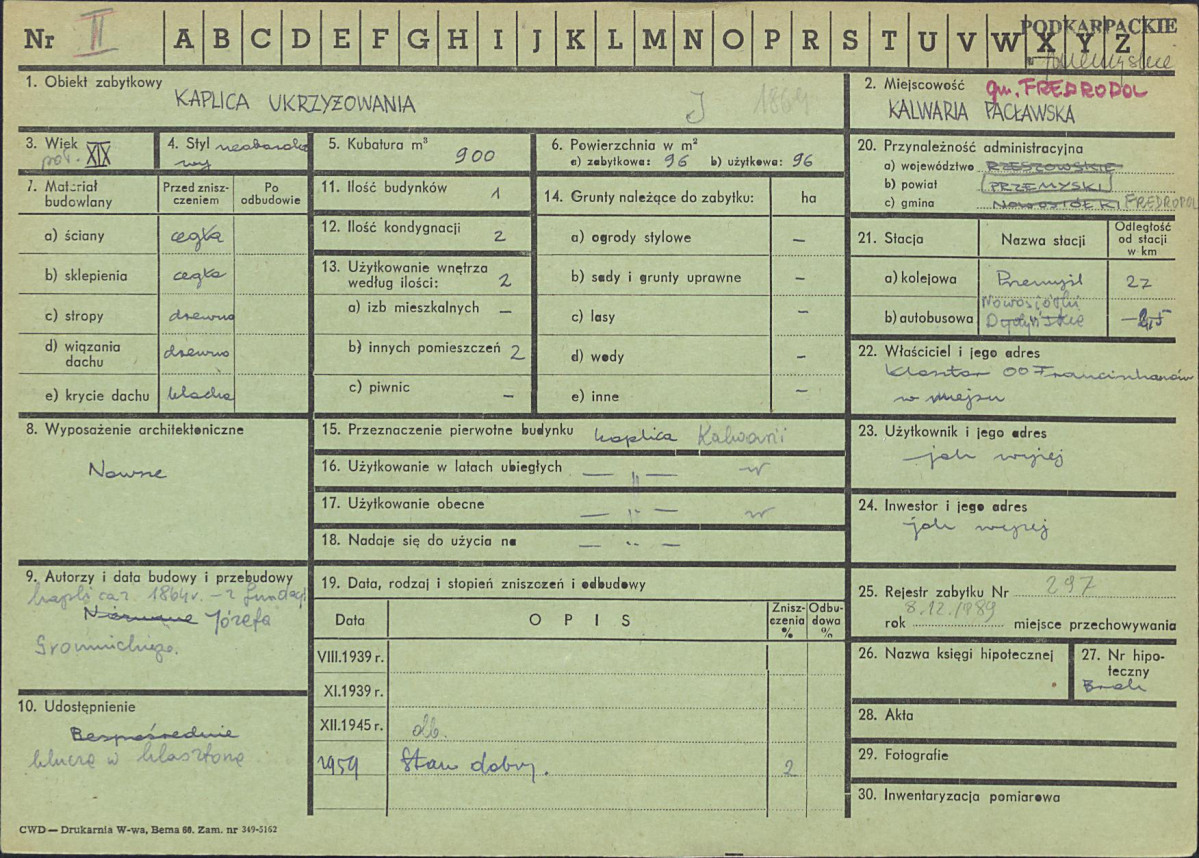 Nr II A B C D E F G H I J K L M N O P R S T U V W X Y Z
PODKARPACKIE
1. Obiekt zabytkowy
KAPLICA UKRZYŻOWANIA
J 1864
2. Miejscowość gm. FREDROPOL
KALWARIA PACŁAWSKA
3. Wiek
poł. XIX
4. Styl neobaroko
wy
5. Kubatura m³
900
6. Powierzchnia w m²
a) zabytkowa: 96 b) użytkowa: 96
7. Materiał budowlany
Przed zniszczeniem
Po odbudowie
a) ściany cegła
b) sklepienia cegła
c) stropy drewno
d) wiązania dachu drewno
e) krycie dachu blacha
8. Wyposażenie architektoniczne
Nowsze
9. Autorzy i data budowy i przebudowy
kaplica z 1864r. – z fundacji
Nieznane Józefa
Gromnickiego.
10. Udostępnienie
Bezpośrednie
klucze w klasztorze
11. Ilość budynków 1
12. Ilość kondygnacji 2
13. Użytkowanie wnętrza
według ilości: 2
a) izb mieszkalnych –
b) innych pomieszczeń 2
c) piwnic –
14. Grunty należące do zabytku: ha
a) ogrody stylowe –
b) sady i grunty uprawne –
c) lasy –
d) wody –
e) inne –
15. Przeznaczenie pierwotne budynku kaplica Kalwarii
16. Użytkowanie w latach ubiegłych — " —
17. Użytkowanie obecne — " —
18. Nadaje się do użycia na — " —
19. Data, rodzaj i stopień zniszczeń i odbudowy
Data
O P I S
Zniszczenia %
Odbudowa %
VIII.1939 r.
XI.1939 r.
XII.1945 r. db.
1959 Stan dobry. 2
20. Przynależność administracyjna
a) województwo RZESZOWSKIE
b) powiat PRZEMYSKI
c) gmina NOWOSIÓŁKI FREDROPOL
21. Stacja
Nazwa stacji
Odległość od stacji w km
a) kolejowa Przemyśl 22
Nowosiółki
b) autobusowa Dydyńskie
22. Właściciel i jego adres
Klasztor OO Franciszkanów
w miejscu
23. Użytkownik i jego adres
jak wyżej
24. Inwestor i jego adres
jak wyżej
25. Rejestr zabytku Nr 297
8.12.1989
rok miejsce przechowywania
26. Nazwa księgi hipotecznej
27. Nr hipoteczny
Brak
28. Akta
29. Fotografie
30. Inwentaryzacja pomiarowa
CWD — Drukarnia W-wa, Bema 60. Zam. nr 349-5162